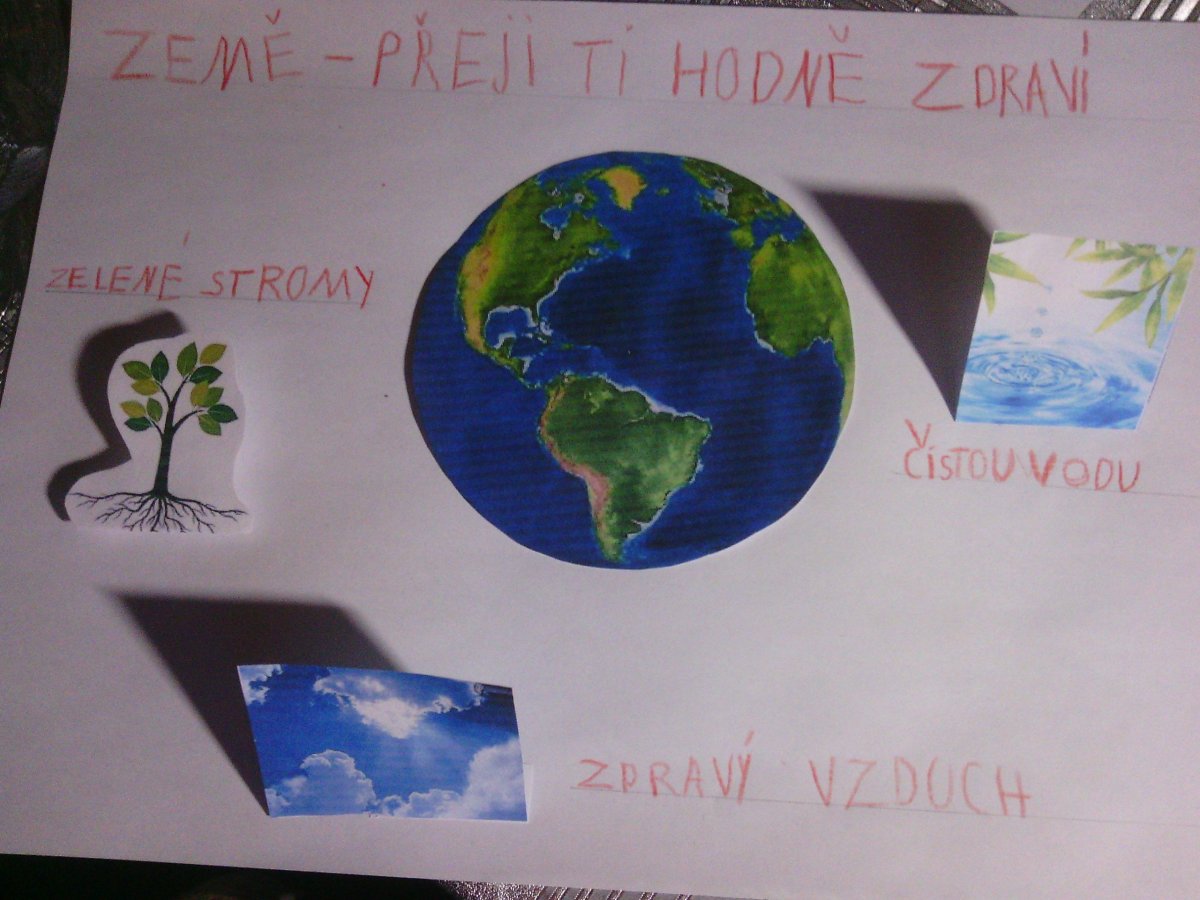 ZEMĚ - PŘEJI TI HODNĚ ZDRAVÍ
ZELENÉ STROMY
ČISTOU VODU
ZDRAVÝ VZDUCH